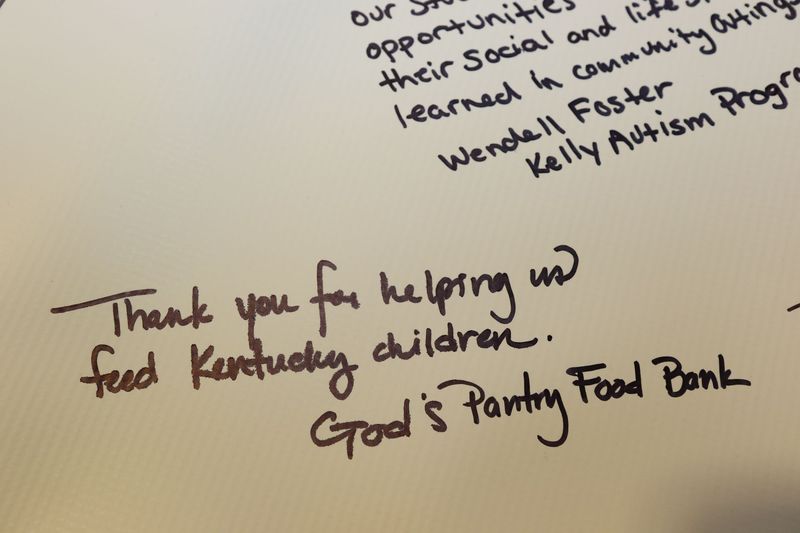 our
opportunities
their Social and life
learned in community outings
Wendell Foster
Kelly Autism
Thank you for helping us
feed Kentucky children.
God's Pantry Food Bank